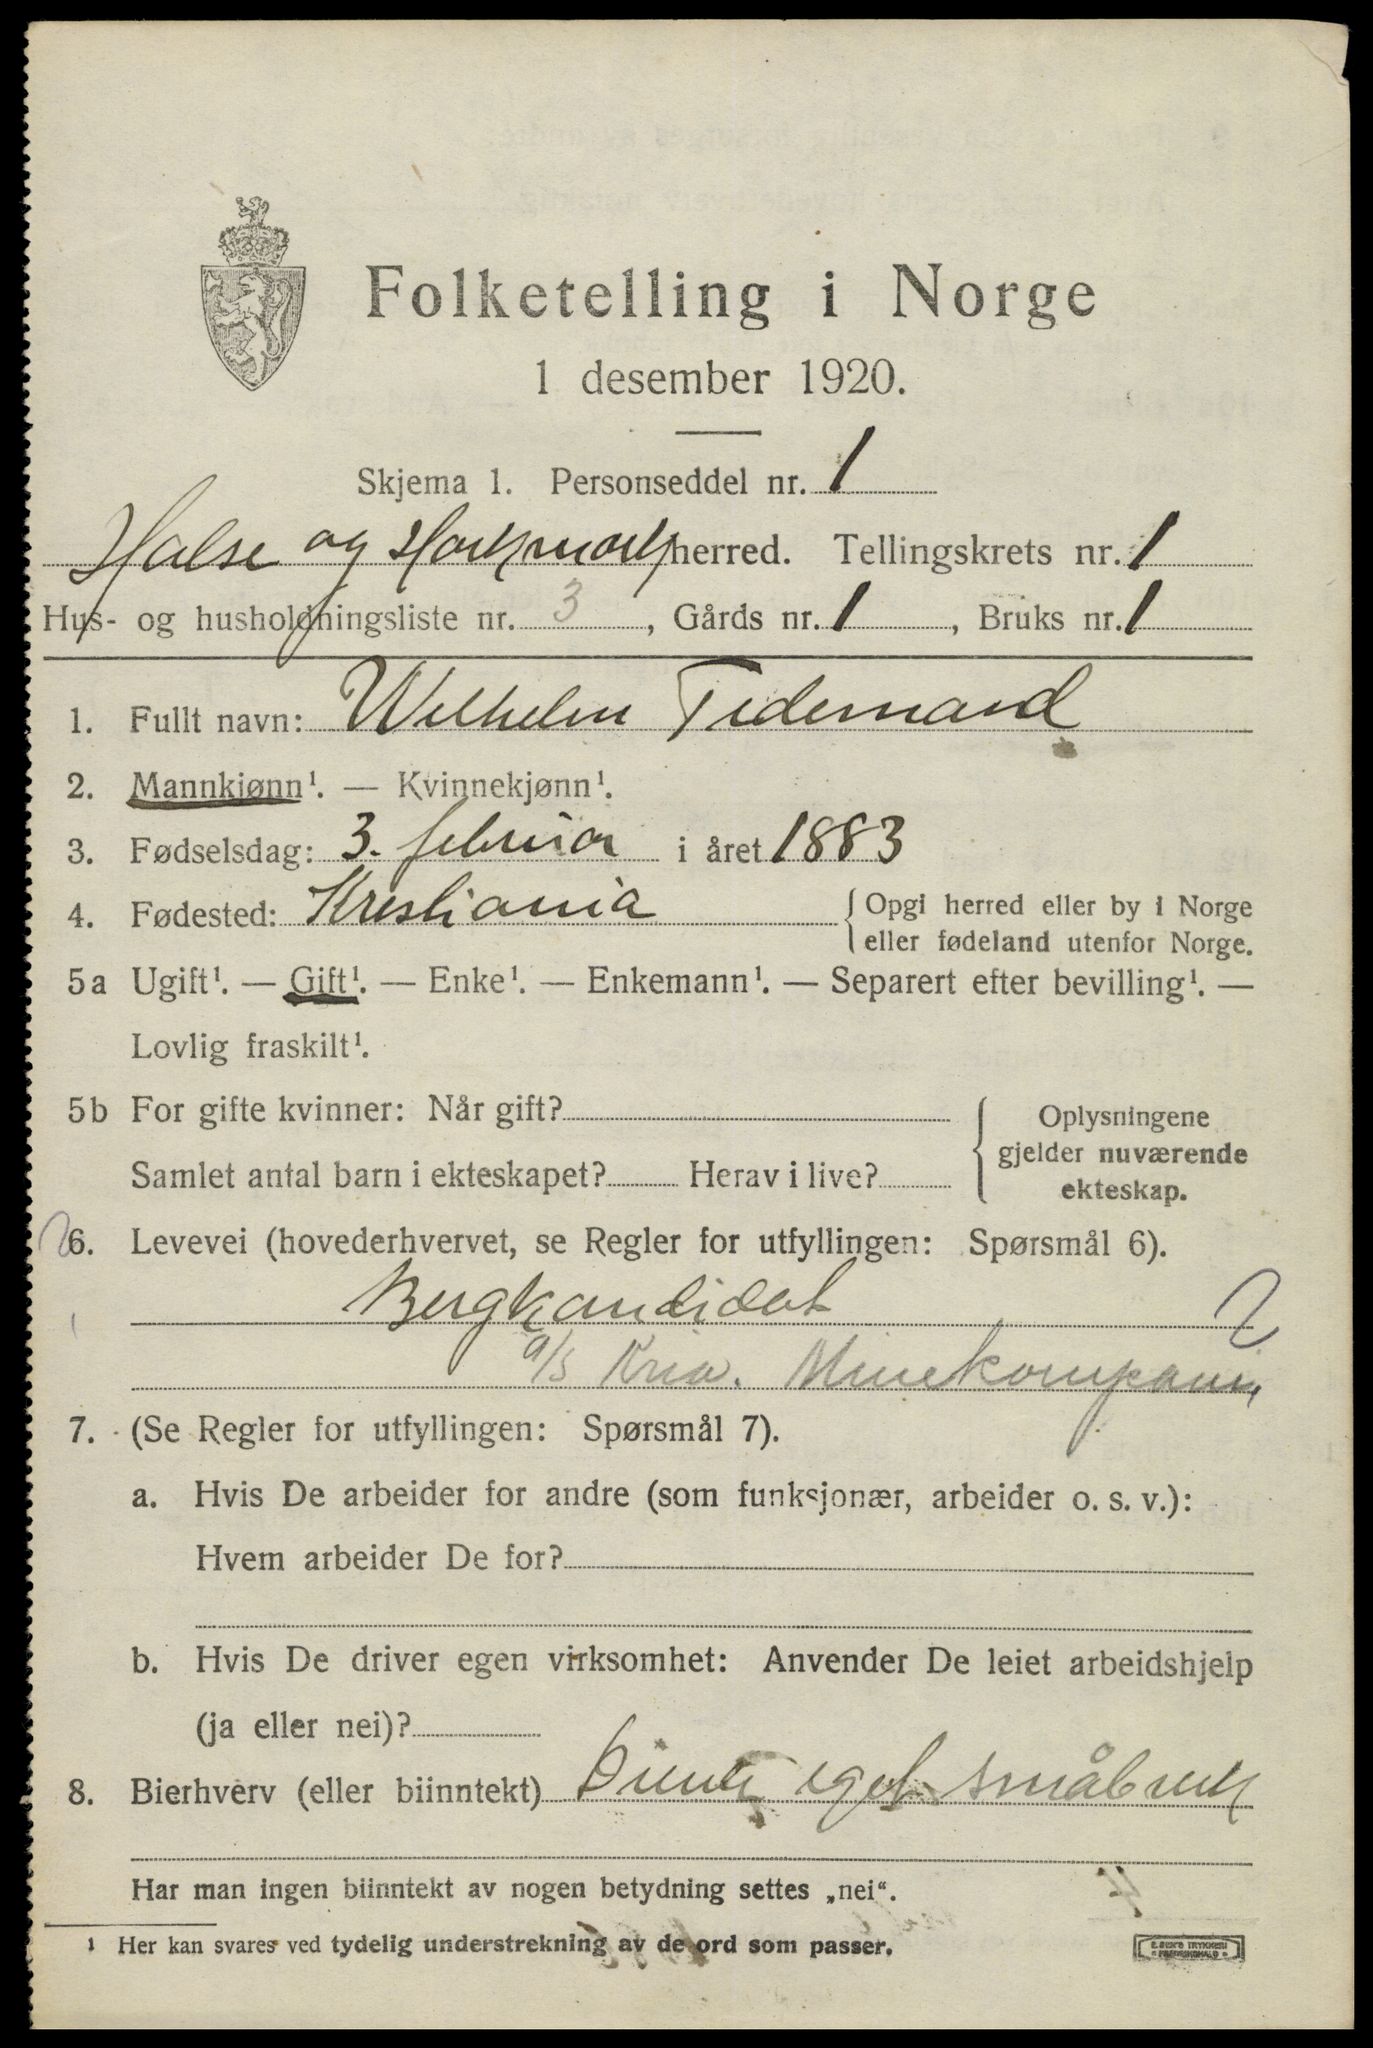 Folketelling i Norge
1 desember 1920.
Skjema 1. Personseddel nr. 1
Halse og Harkmark herred. Tellingskrets nr. 1
Hus- og husholdningsliste nr. 3, Gårds nr. 1, Bruks nr. 1
1. Fullt navn: Wilhelm Tidemand
2. Mannkjønn¹. — Kvinnekjønn¹.
3. Fødselsdag: 3. februar i året 1883
4. Fødested: Kristiania {Opgi herred eller by i Norge
eller fødeland utenfor Norge.
5a Ugift¹. — Gift¹. — Enke¹. — Enkemann¹. — Separert efter bevilling¹. —
Lovlig fraskilt¹.
5b For gifte kvinner: Når gift?
Samlet antal barn i ekteskapet? Herav i live?
{Oplysningene
gjelder nuværende
ekteskap.
6. Levevei (hovederhvervet, se Regler for utfyllingen: Spørsmål 6).
Bergkandidat
a/s Kria. Minekompani
7. (Se Regler for utfyllingen: Spørsmål 7).
a. Hvis De arbeider for andre (som funksjonær, arbeider o. s. v.):
Hvem arbeider De for?
b. Hvis De driver egen virksomhet: Anvender De leiet arbeidshjelp
(ja eller nei)?
8. Bierhverv (eller biinntekt) eget småbruk
Har man ingen biinntekt av nogen betydning settes „nei“.
¹ Her kan svares ved tydelig understrekning av de ord som passer.